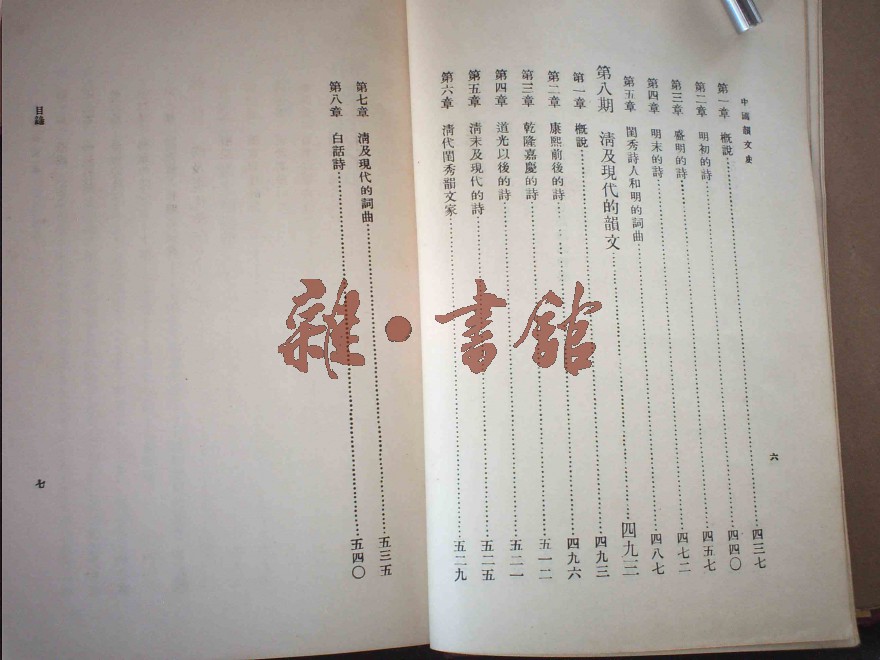 中國韻文史
六
第一章 概說……四三七
第二章 明初的詩……四四〇
第三章 盛明的詩……四五七
第四章 明末的詩……四七二
第五章 閨秀詩人和明的詞曲……四八七
第八期 清及現代的韻文……四九三
第一章 概說……四九三
第二章 康熙前後的詩……四九六
第三章 乾隆嘉慶的詩……五一二
第四章 道光以後的詩……五二一
第五章 清末及現代的詩……五二五
第六章 清代閨秀韻文家……五二九
第七章 清及現代的詞曲……五三五
第八章 白話詩……五四〇
目錄
七
雜·書館